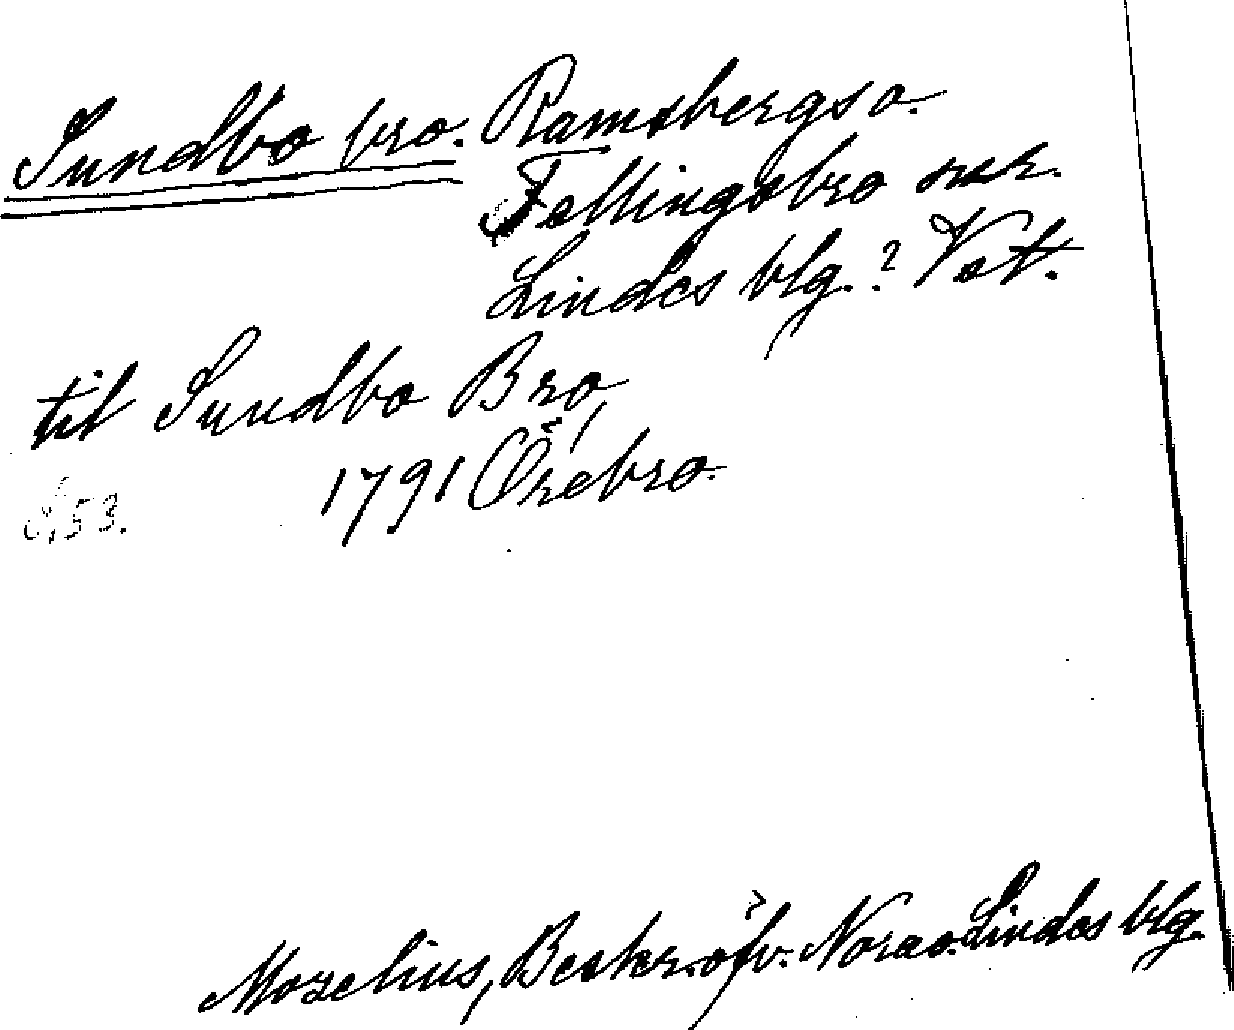 Sundbo bro. Ramsbergs o.
Fellingsbro snr.
Lindes blg.? Vst.
till Sundbo Bro,
1791 Örebro.
S. 53.
Morelius, Beskr. öfv. Nora o. Lindes blg.